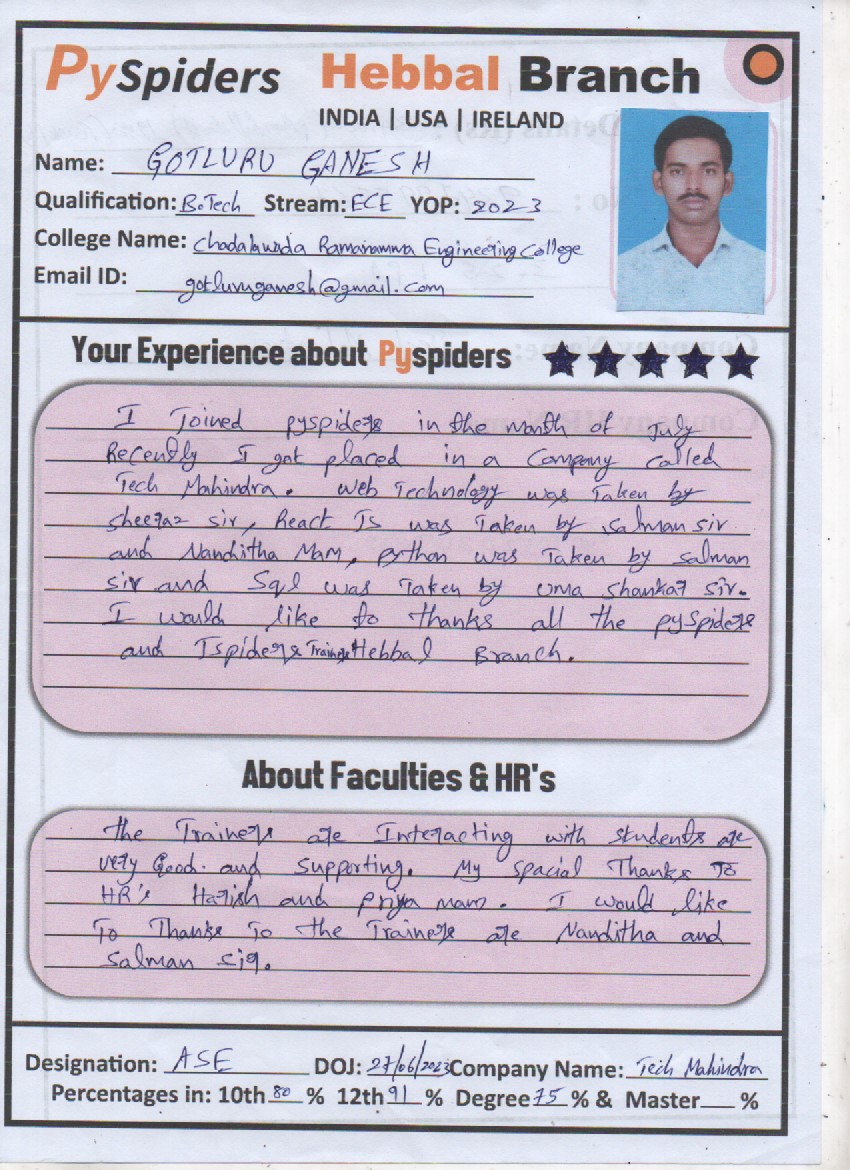 PySpiders Hebbal Branch
INDIA | USA | IRELAND
Name: GOTLURU GANESH
Qualification: B.Tech Stream: ECE YOP: 2023
College Name: Chadalawada Ramanamma Engineering College
Email ID: gotluruganesh@gmail.com
Your Experience about Pyspiders
I Joined pyspiders in the month of July
Recently I got placed in a Company called
Tech Mahindra. Web Technology was Taken by
sheeraz sir, React Js was Taken by salman sir
and Nanditha Mam, python was Taken by salman
sir and Sql was Taken by uma shankar sir.
I would like to thanks all the pyspiders
and Jspiders Trainers Hebbal Branch.
About Faculties & HR's
the Trainers are Interacting with students are
very Good. and supporting. My spacial Thanks To
HR's Harish and priya mam. I would like
To Thanks To the Trainers are Nanditha and
Salman sir.
Designation: ASE DOJ: 27/06/2023 Company Name: Tech Mahindra
Percentages in: 10th 80 % 12th 91 % Degree 75 % & Master___ %